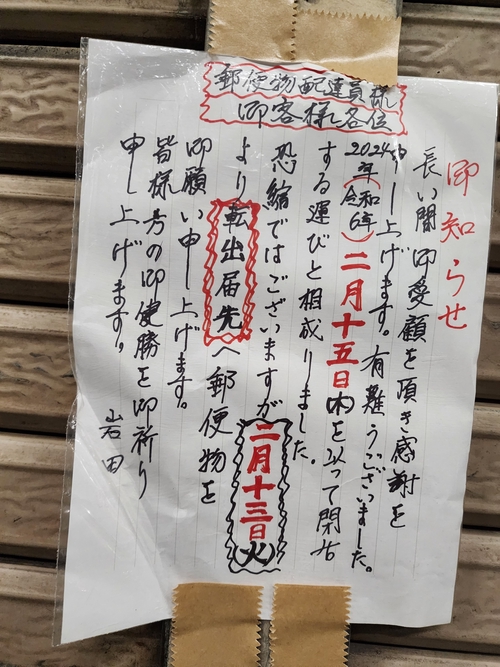 郵便物配達員様
御客様各位
御知らせ
長い間御愛顧を頂き感謝を
申し上げます。有難うございました。
2024年(令和6年)二月十五日(木)を以って閉店
する運びと相成りました。
恐縮ではございますが二月十三日(火)
より転出届先へ郵便物を
御願い申し上げます。
皆様方の御健勝を御祈り
申し上げます。
岩田